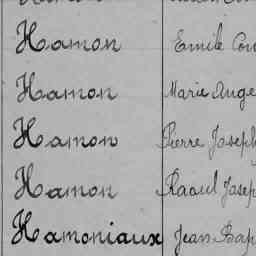 Hamon Emile
Hamon Marie Ange
Hamon Pierre Joseph
Hamon Raoul Josep
Hamoniaux Jean Bap